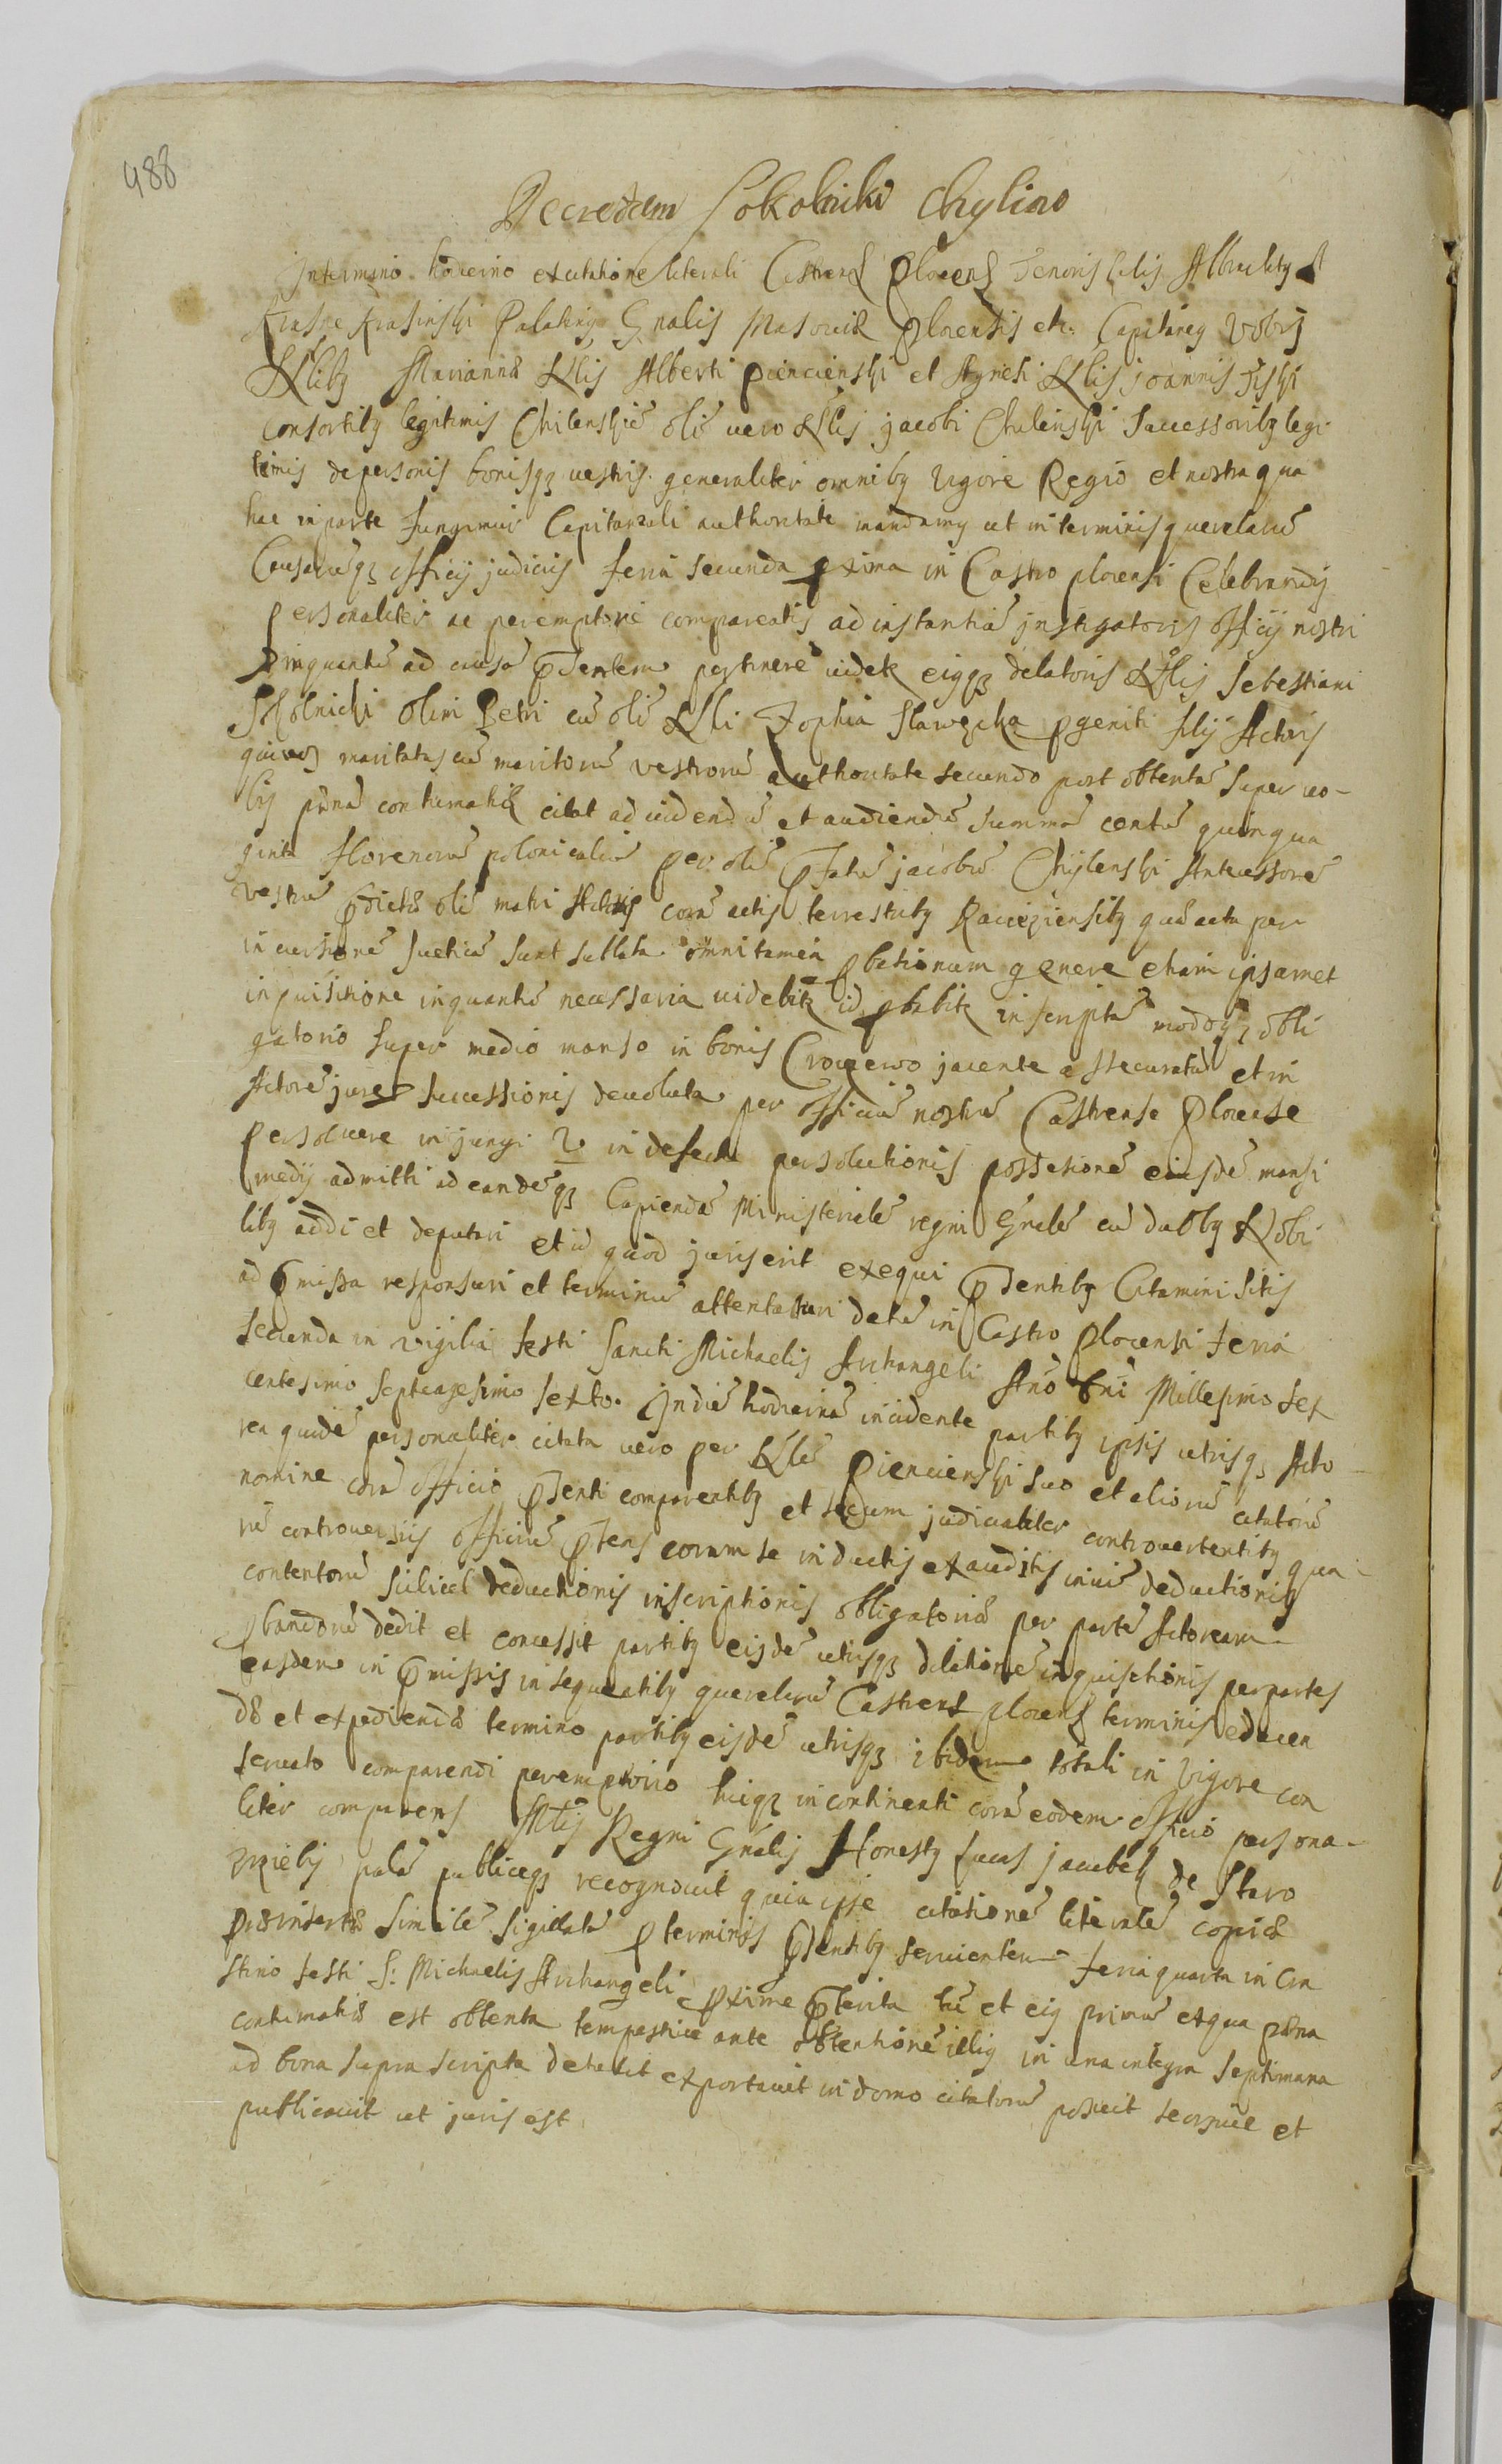 488
Decretum Sokolnicki Chylino
In termino hodierno ex citatione literali Castren Plocen Tenoris talis Albrachty A
Krasne Krasinski Palatinus Gnalis Masoviæ Plocensis etc. Capitaneus Vobis
Nlibus Mariannæ Nlis Alberti Piencienski et Agneti Nlis Joannis
consortibus legitimis Chilenskie olim vero Nlis Jacobi Chulinski successoribus legi
timis de personis bonisque vestris generaliter omnibus vigore Regio et nostra qua
hac in parte fungimur Capitaneali authoritate mandamus ut in terminis querelarum
Causarumque officij judicijs feria secunda proxima in Castro plocensi Celebrandis
personaliter ac peremptorie compareatis ad instantiam instigatoris officij nostri
inquantum ad causam præsentem pertinere videtur eiusque delatoris Nlis Sebestiani
Sokolnicki olim Petri cum olim Nli Zophia Slawęcka progeniti filij Actoris
qui vos maritatas cum maritorum vestrorum authoritate secundo post obtentam super vo-
bis pænam contumatiæ citat ad videndum et audiendum summam centum quinqua
ginta florenorum polonicalium per olim præfatum Jacobum Chylenski Antecessorem
vestrum prædictæ olim matri Actoris coram actis terrestribus Raciążiensibus quæ acta per
incursionem sueticam sunt sublata omni tamen probationum genere etiam ipsamet
inquisitione inquantum necessaria videbitur id probabitur inscriptam modoque obli
gatorio super medio manso in bonis jacente assecuratam et in
Actorem jure successionis devoluta per officium nostrum Castrense Plocense
persolvere in jungi V in defectu persolutionis possessionem eiusdem mansi
medij admitti ad eandemque Capiendam Ministerialem regni Gnalem cum duobus Nobi
libus addi et deputari et id quod juris erit exequi præsentibus Citamini sitis
ad præmissa responsuri et terminum attentaturi datum in Castro Plocensi feria
secunda in vigilia festi Sancti Michaelis Archangeli Ano Dni Millesimo sex
centesimo septuagesimo sexto. In diem hodiernum incidente partibus ipsis utrisque Acto
rea quidem personaliter citata vero per Nlem Piencienski suo et aliorum citatorum
nomine coram officio præsenti comparentibus et secum judicialiter controvertentibus qua-
rum controversijs officium præsens coram se inductis exauditis in vim deductionis
contentorum scilicet deductionis inscriptionis obligatoriæ per partem Actoream
probandorum dedit et concessit partibus eisdem utrisque dilationem inquisitionis per partes
easdem in præmissis in sequentibus querelarum Castren plocen terminis educen
dæ et expediendæ termino partibus eisdem utrisque ibidem totali in vigore con
servato comparendi peremptorio huicque incontinenti coram eodem officio persona-
liter comparens Mlis Regni Gnalis Honestus Lucas Jacubek de Staro
zrzieby palam publiceque recognovit quia ipse citationem literalem copiæ
præinsertæ similem sigillatam pro terminis præsentibus servientem feria quarta in cra
stino festi S: Michaelis Archangeli proxime præterita tum et eius primum ex qua pæna
contumatiæ est obtenta tempestive ante obtentionem illius in una integra septimana
ad bona supra scripta detulit exportavit in domo citatorum posuit seorsive et
publicavit ut juris est